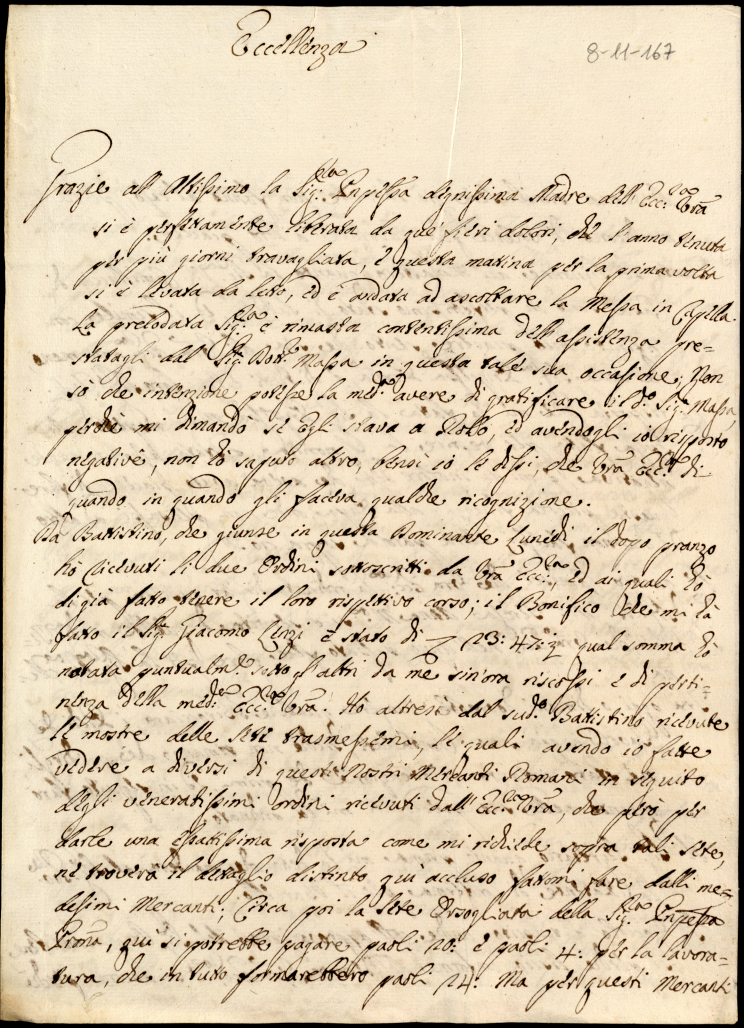 Eccellenza
8-11-167
Grazie all Altissimo la Sig:ra Pnpessa degnissima Madre dell' Ecc:za Vra
si è perfettamente liberata da que fieri dolori, che l'anno tenuta
per più giorni travagliata, e questa mattina per la prima volta
si è levata da letto, ed è andata ad ascoltare la Messa in Capella.
La prelodata Sig:ra è rimasta contentissima dell'assistenza pre=
statagli dal Sig:r Dott:r Massa in questa tale sua occasione; Non
sò che intenzione potesse la med:a avere di gratificare il d:o Sig:r Massa,
perchè mi dimandò se Egli stava a Rollo, ed avendogli io risposto
negativè, non hò saputo altro, bensì io le dissi, che Vra Ecc:za di
quando in quando gli faceva qualche ricognizione.
Da Battistino, che giunse in questa Dominante Lunedì il dopo pranzo
hò ricevuti li due Ordini sottoscritti da Vra Ecc:za, ed ai quali hò
di già fatto tenere il loro rispettivo corso; il Bonifico che mi hà
fatto il Sig:r Giacomo Lenzi è stato di 23:47:½ qual somma hò
notata puntualm:e sotto gl'altri da me sin'ora riscossi e di perti=
nenza della med:a Ecc:za Vra. Hò altresì dal sud:o Battistino ricevute
le mostre delle sete trasmessemi, le quali avendo io fatte
vedere a diversi di questi Nostri Mercanti Romani in seguito
degli veneratissimi ordini ricevuti dall'Ecc:za Vra, che però per
darle una esattissima risposta come mi richiede sopra tali sete,
ne troverà il detaglio distinto quì accluso fattomi fare dalli me=
desimi Mercanti; Circa poi la Sete Orsogliata della Sig:ra Pnpessa
Prona, quì si potrebbe pagare paoli 20: e paoli 4: per la lavora=
tura, che in tutto formarebbero paoli 24: Ma per questi Mercanti